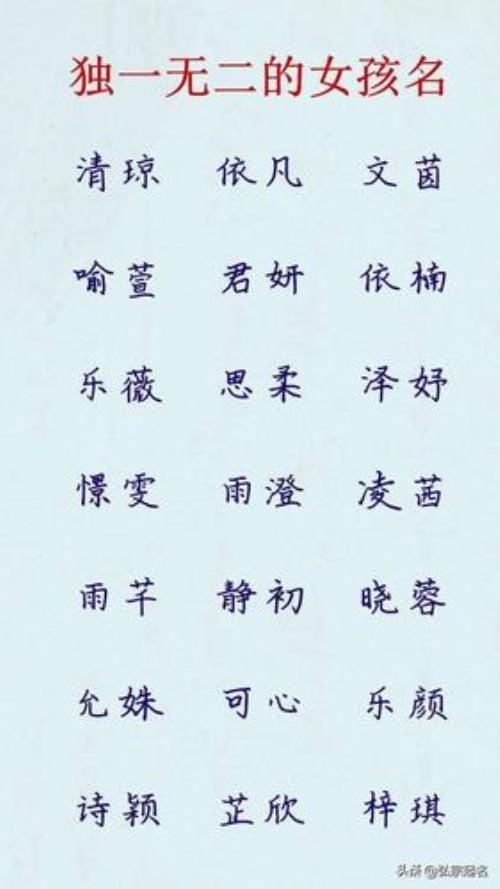 独一无二的女孩名
清琼 依凡 文茵
喻萱 君妍 依楠
乐薇 思柔 泽妤
憬雯 雨澄 凌茜
雨芊 静初 晓蓉
允姝 可心 乐颜
诗颖 芷欣 梓琪
头条@弘家冠名